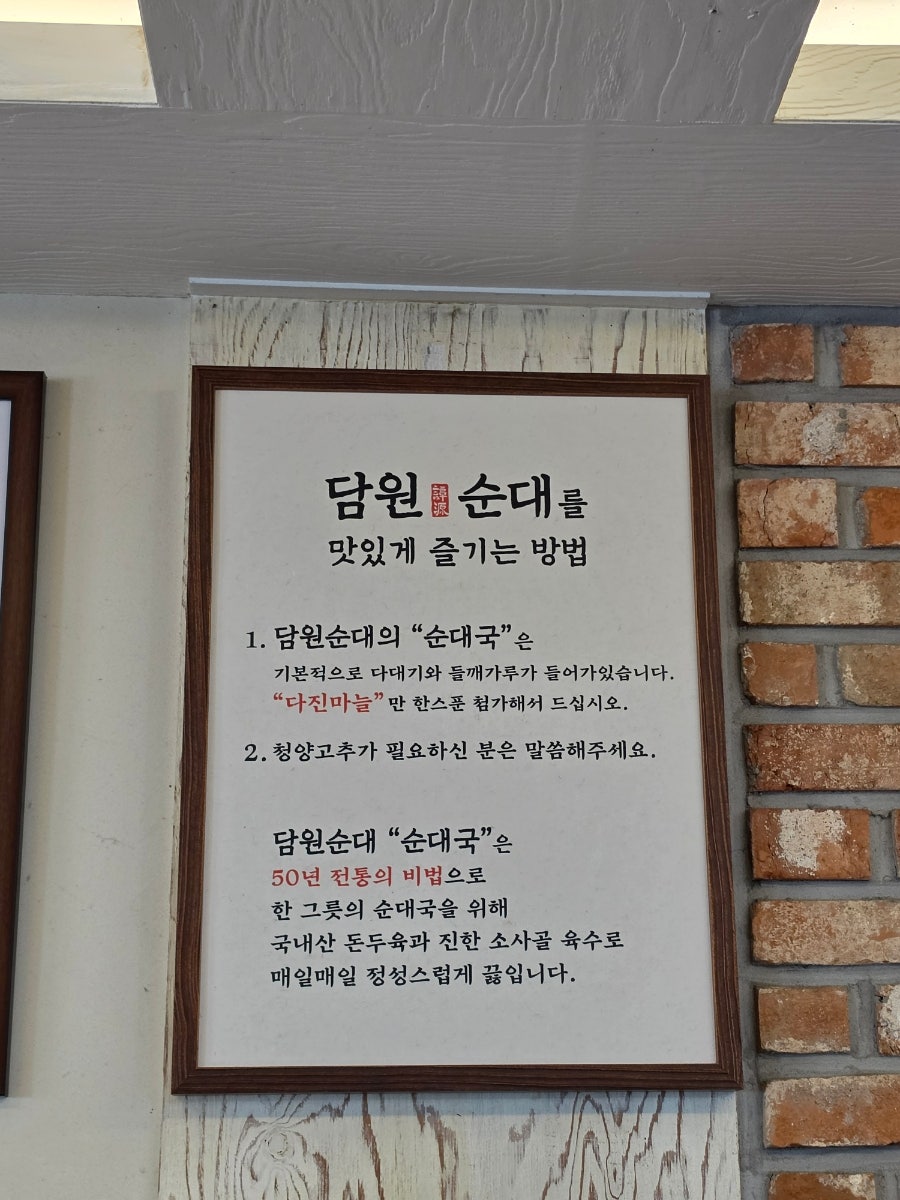 담원 譚源 순대를
맛있게 즐기는 방법
1. 담원순대의 “순대국”은
기본적으로 다대기와 들깨가루가 들어가있습니다.
“다진마늘”만 한스푼 첨가해서 드십시오.
2. 청양고추가 필요하신 분은 말씀해주세요.
담원순대 “순대국”은
50년 전통의 비법으로
한 그릇의 순대국을 위해
국내산 돈두육과 진한 소사골 육수로
매일매일 정성스럽게 끓입니다.